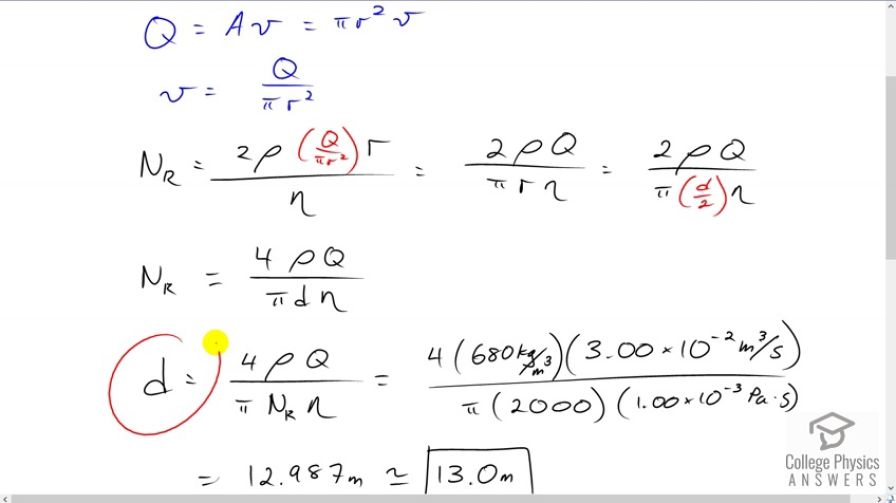 Q = Av = πr²v
v = Q/(πr²)
N_R = 2ρ(Q/(πr²))r / η = 2ρQ/(πrη) = 2ρQ/(π(d/2)η)
N_R = 4ρQ/(πdη)
d = 4ρQ/(πN_Rη) = 4(680kg/m³)(3.00×10⁻²m³/s) / (π(2000)(1.00×10⁻³Pa·s))
= 12.987m ≃ 13.0m
College Physics
ANSWERS